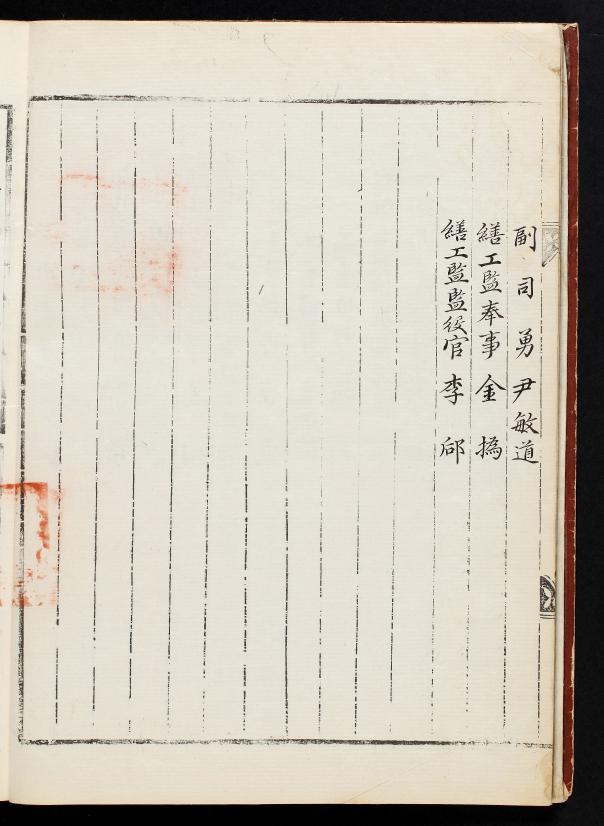 副司勇尹敏道
繕工監奉事金撝
繕工監監役官李邱